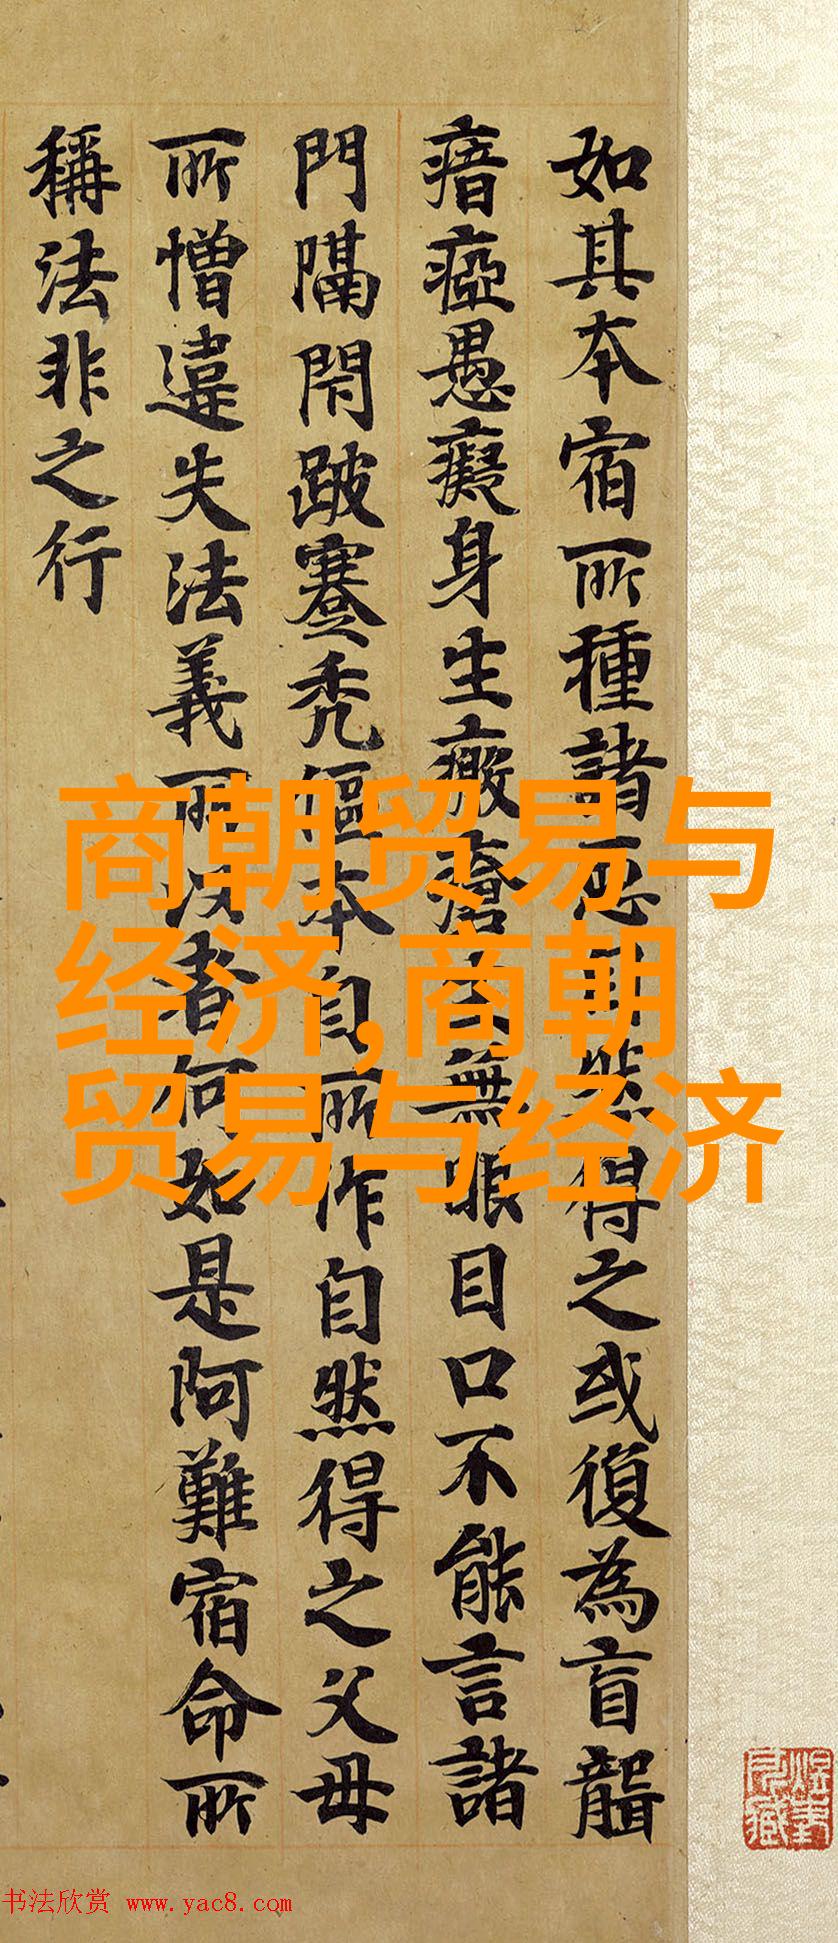 如其本宿所種諸惡自然得之或復為盲聾
瘖瘂愚癡身生瘡無眼目口不能言諸
門隔閇跛蹇禿傴本自所作自然得之父母
所憎違失法義所者何如是阿難宿命所
稱法非之行
商朝贸易与
经济,商朝
贸易与经济
书法欣赏 www.yac8.com